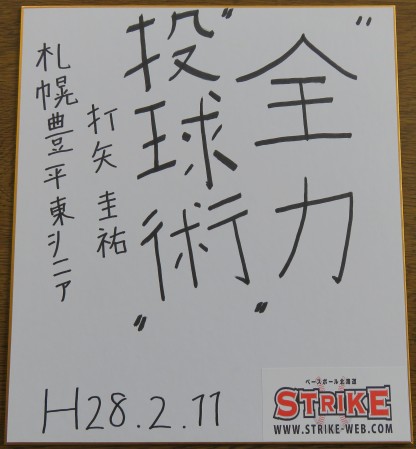 "全力"
"投球術"
打矢 圭祐
札幌豊平東シニア
H28.2.11
ベースボール北海道
STRIKE
WWW.STRIKE-WEB.COM